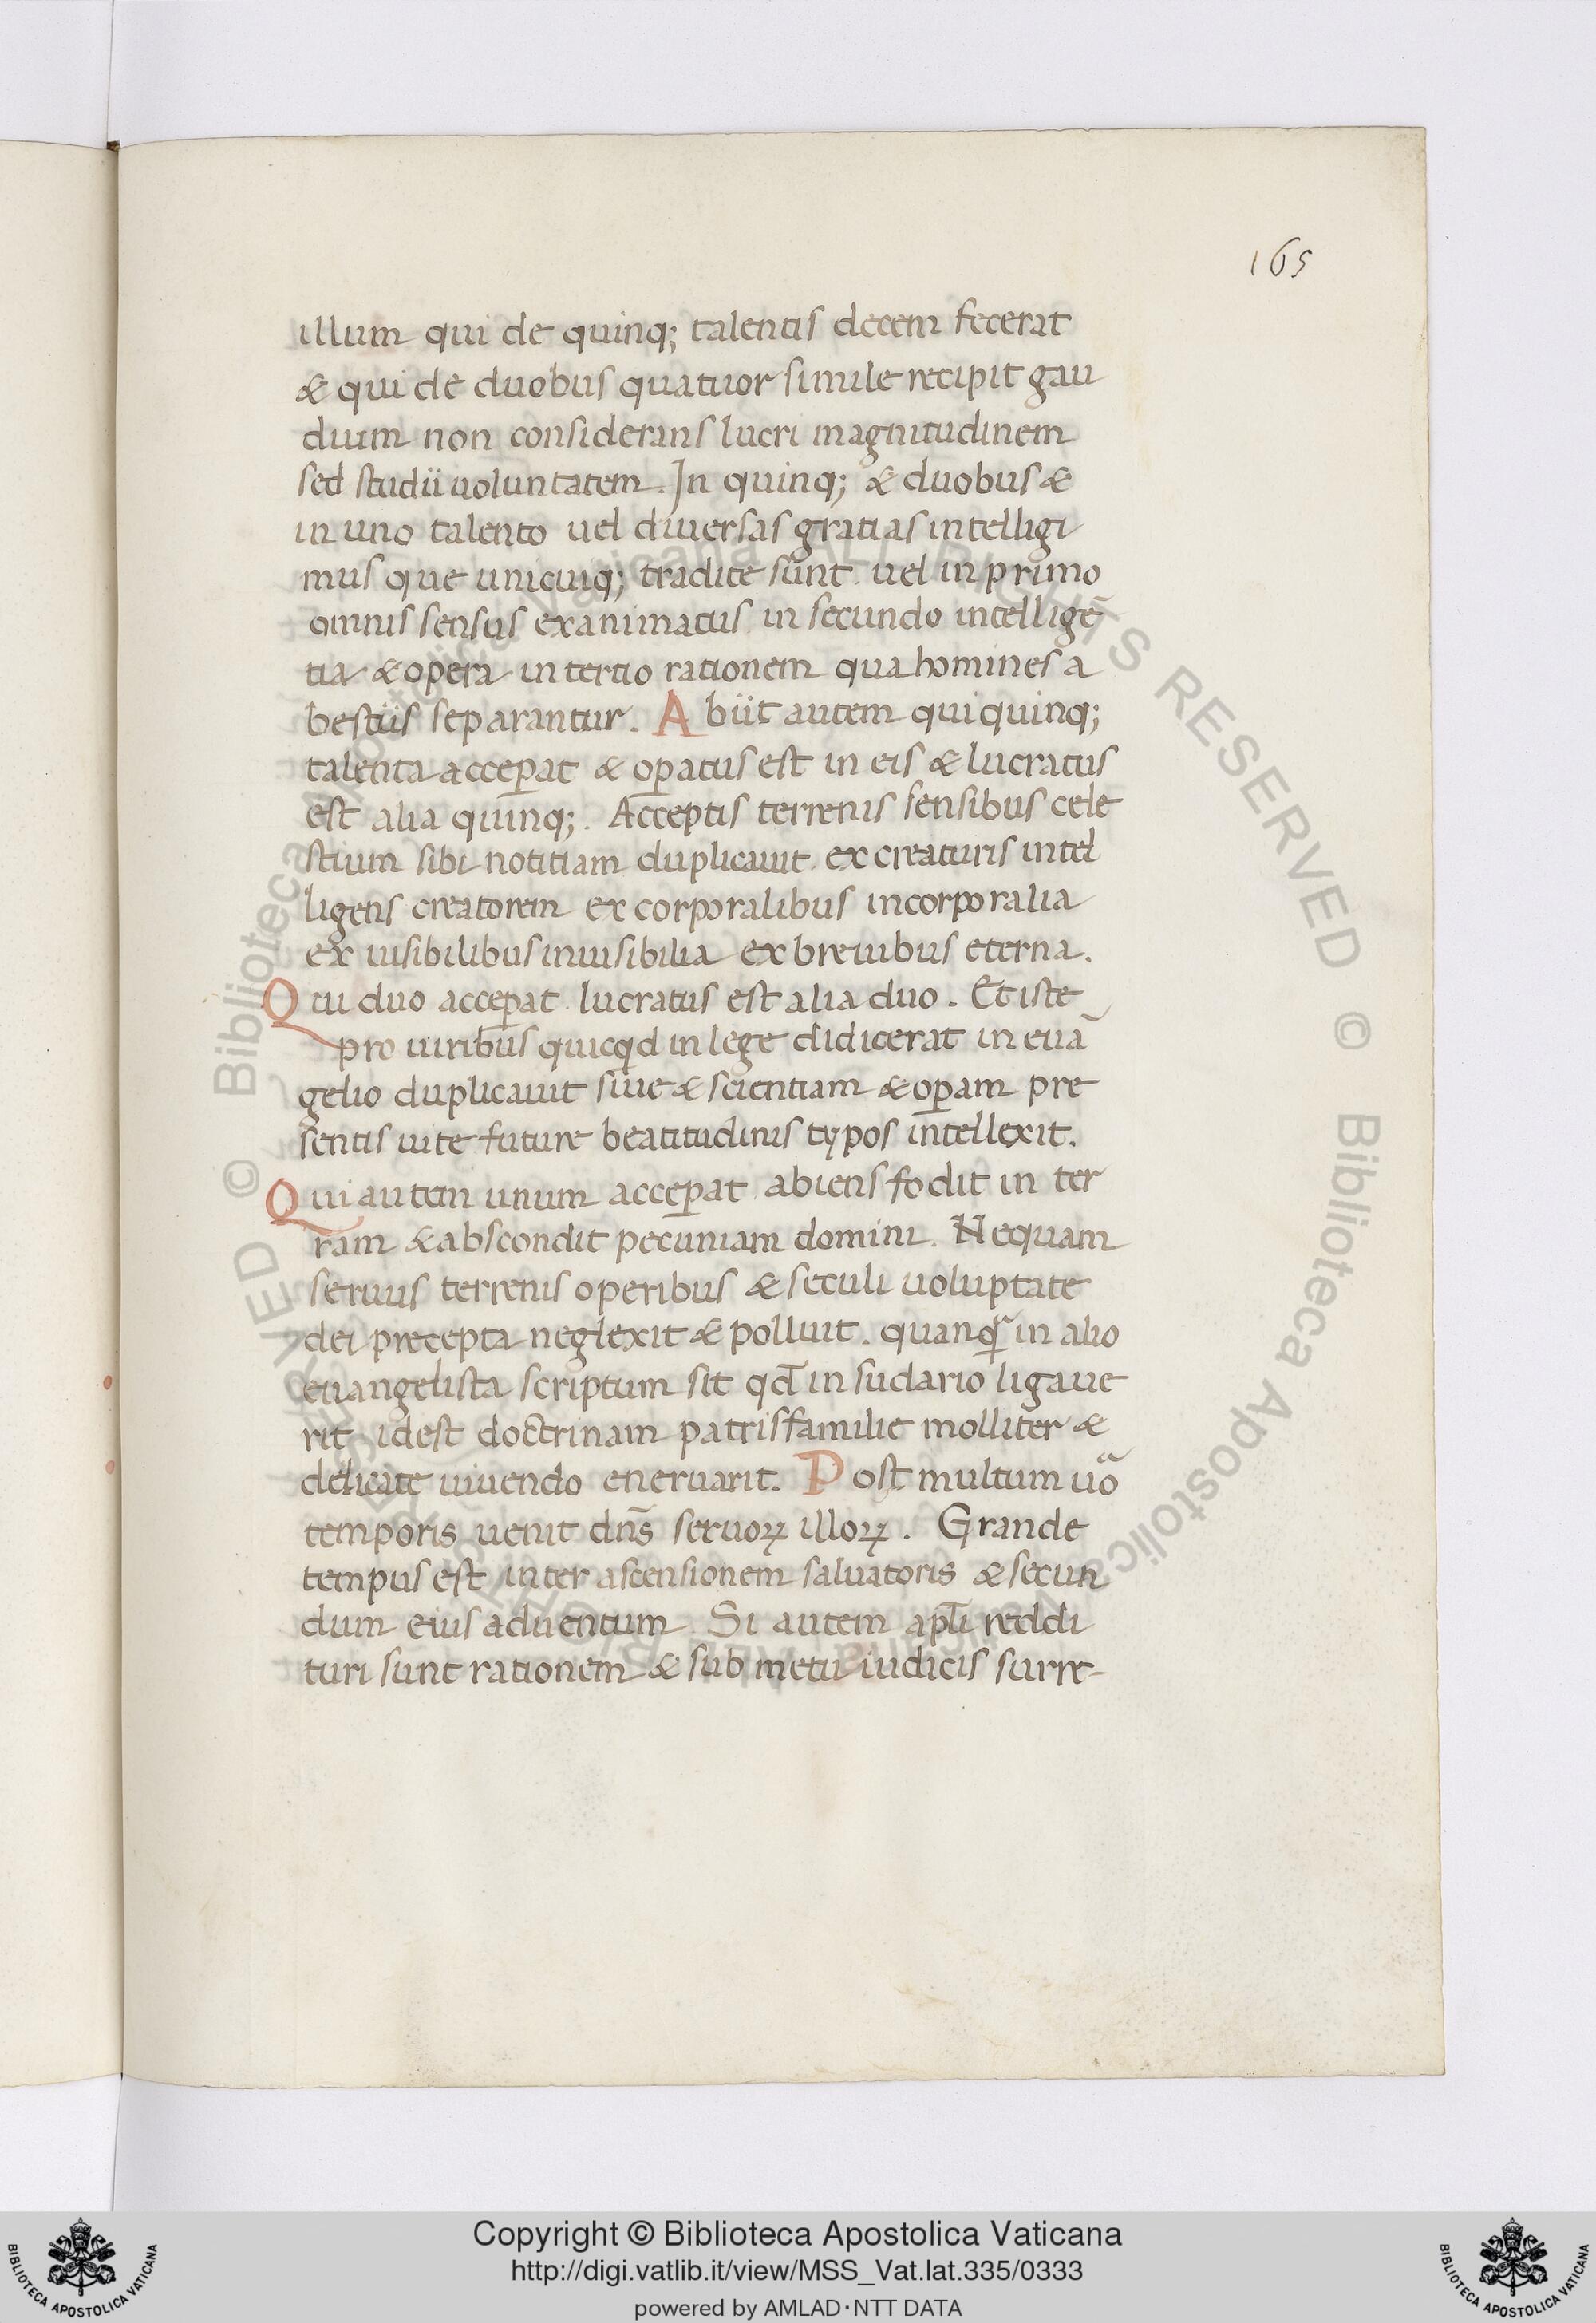 165
illum qui de quinq; talentis decem fecerat
& qui de duobus quatuor simile recipit gau
dium non considerans lucri magnitudinem
sed studii uoluntatem. In quinq; & duobus &
in uno talento uel diuersas gratias intelligi
mus que unicuiq; tradite sunt. uel in primo
omnis sensus exanimatus in secundo intelligē
tia & opera in tertio rationem qua homines a
bestiis separantur. Abiit autem qui quinq;
talenta acceꝑat & oꝑatus est in eis & lucratus
est alia quinq;. Acceptis terrenis sensibus cele
stium sibi notitiam duplicauit. ex creaturis intel
ligens creatorem ex corporalibus incorporalia
ex uisibilibus inuisibilia ex breuibus eterna.
Qui duo acceꝑat lucratus est alia duo. Et iste
pro uiribus quicqd in lege didicerat in euā
gelio duplicauit siue & scientiam & oꝑam pre
sentis uite future beatitudinis typos intellexit.
Qui autem unum acceꝑat abiens fodit in ter
ram & abscondit pecuniam domini. Nequam
seruus terrenis operibus & seculi uoluptate
dei precepta neglexit & polluit. quanq̄ in alio
euangelista scriptum sit qd̄ in sudario ligaue
rit idest doctrinam patrisfamilie molliter &
delicate uiuendo eneruarit. Post multum uō
temporis uenit dn̄s seruoꝝ illoꝝ. Grande
tempus est inter ascensionem saluatoris & secun
dum eius aduentum. Si autem apl̄i reddi
turi sunt rationem & sub metu iudicis surre-
© Biblioteca Apostolica Vaticana ALL RIGHTS RESERVED © Biblioteca Apostolica Vaticana ALL RIGHTS RESERVED
Copyright © Biblioteca Apostolica Vaticana
http://digi.vatlib.it/view/MSS_Vat.lat.335/0333
powered by AMLAD·NTT DATA
BIBLIOTECA APOSTOLICA VATICANA
BIBLIOTECA APOSTOLICA VATICANA